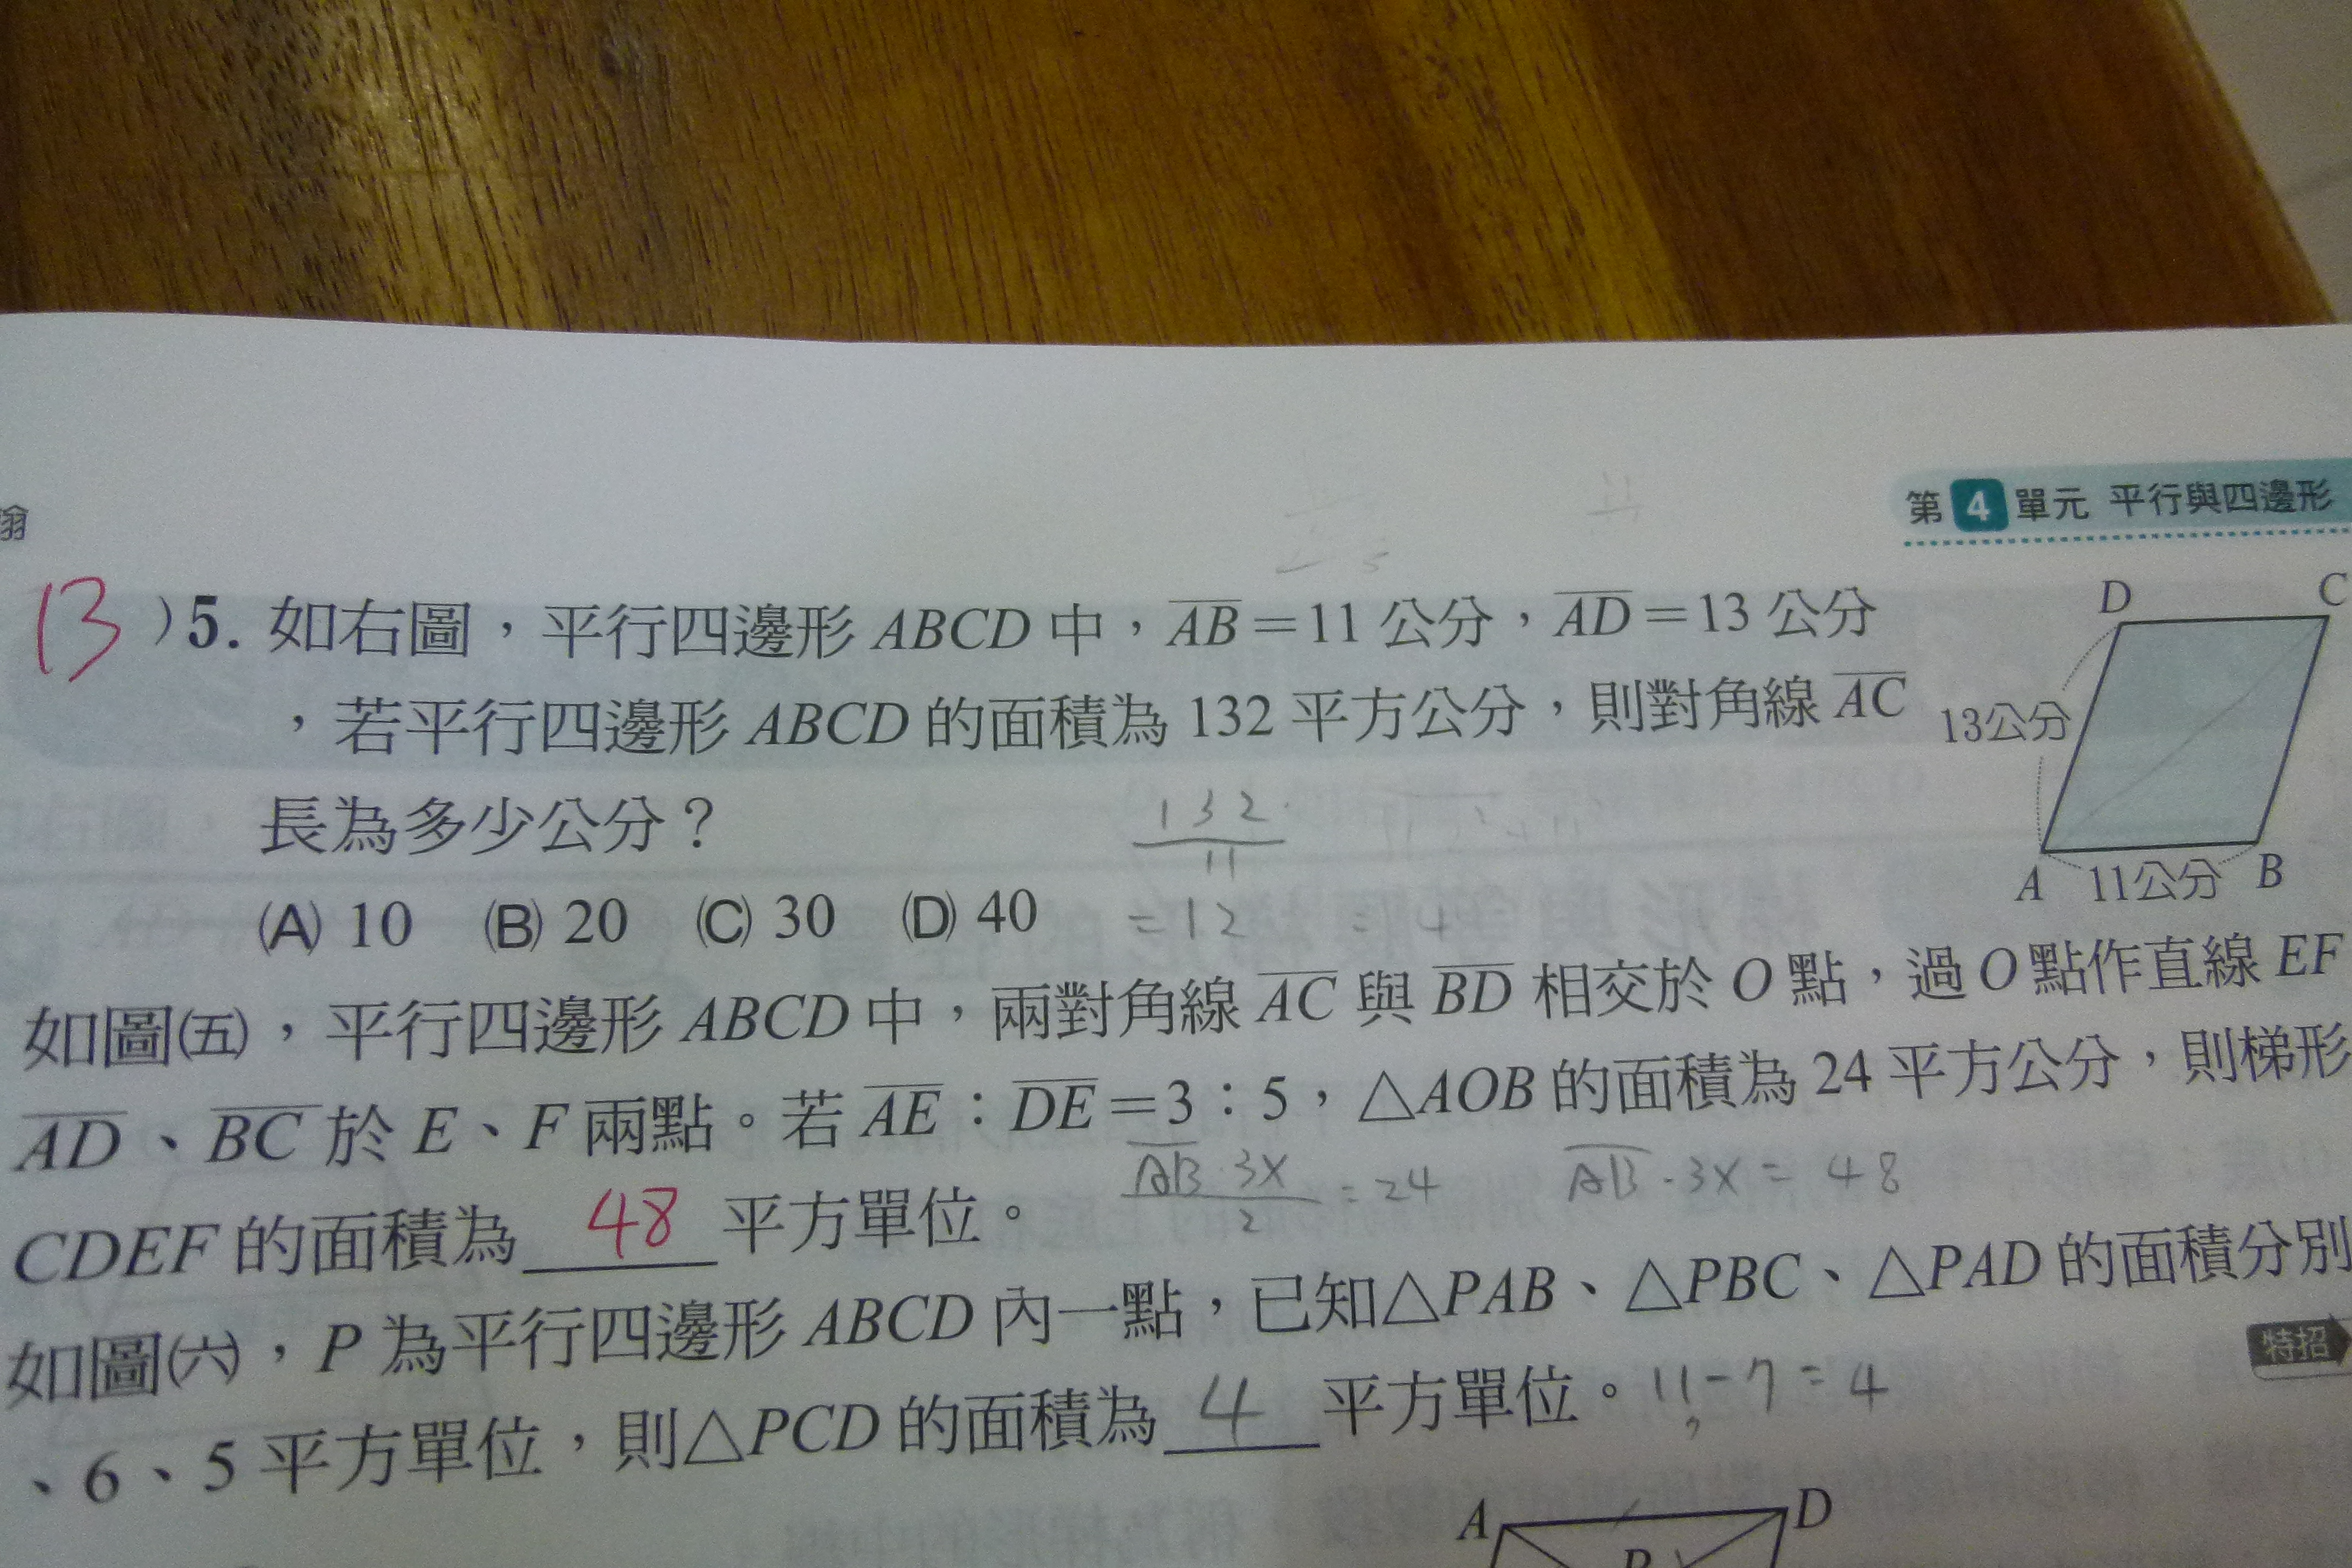 第 4 單元 平行與四邊形
13 )5. 如右圖，平行四邊形 ABCD 中，AB＝11 公分，AD＝13 公分
，若平行四邊形 ABCD 的面積為 132 平方公分，則對角線 AC
長為多少公分？
(A) 10 (B) 20 (C) 30 (D) 40
132
11
=12
= 4
D
C
13公分
A
11公分
B
如圖(五)，平行四邊形 ABCD 中，兩對角線 AC 與 BD 相交於 O 點，過 O 點作直線 EF
AD、BC 於 E、F 兩點。若 AE：DE＝3：5，△AOB 的面積為 24 平方公分，則梯形
CDEF 的面積為 48 平方單位。
AB·3x
2
=24
AB·3x = 48
如圖(六)，P 為平行四邊形 ABCD 內一點，已知△PAB、△PBC、△PAD 的面積分別
、6、5 平方單位，則△PCD 的面積為 4 平方單位。 11-7=4
特招
A
D
P